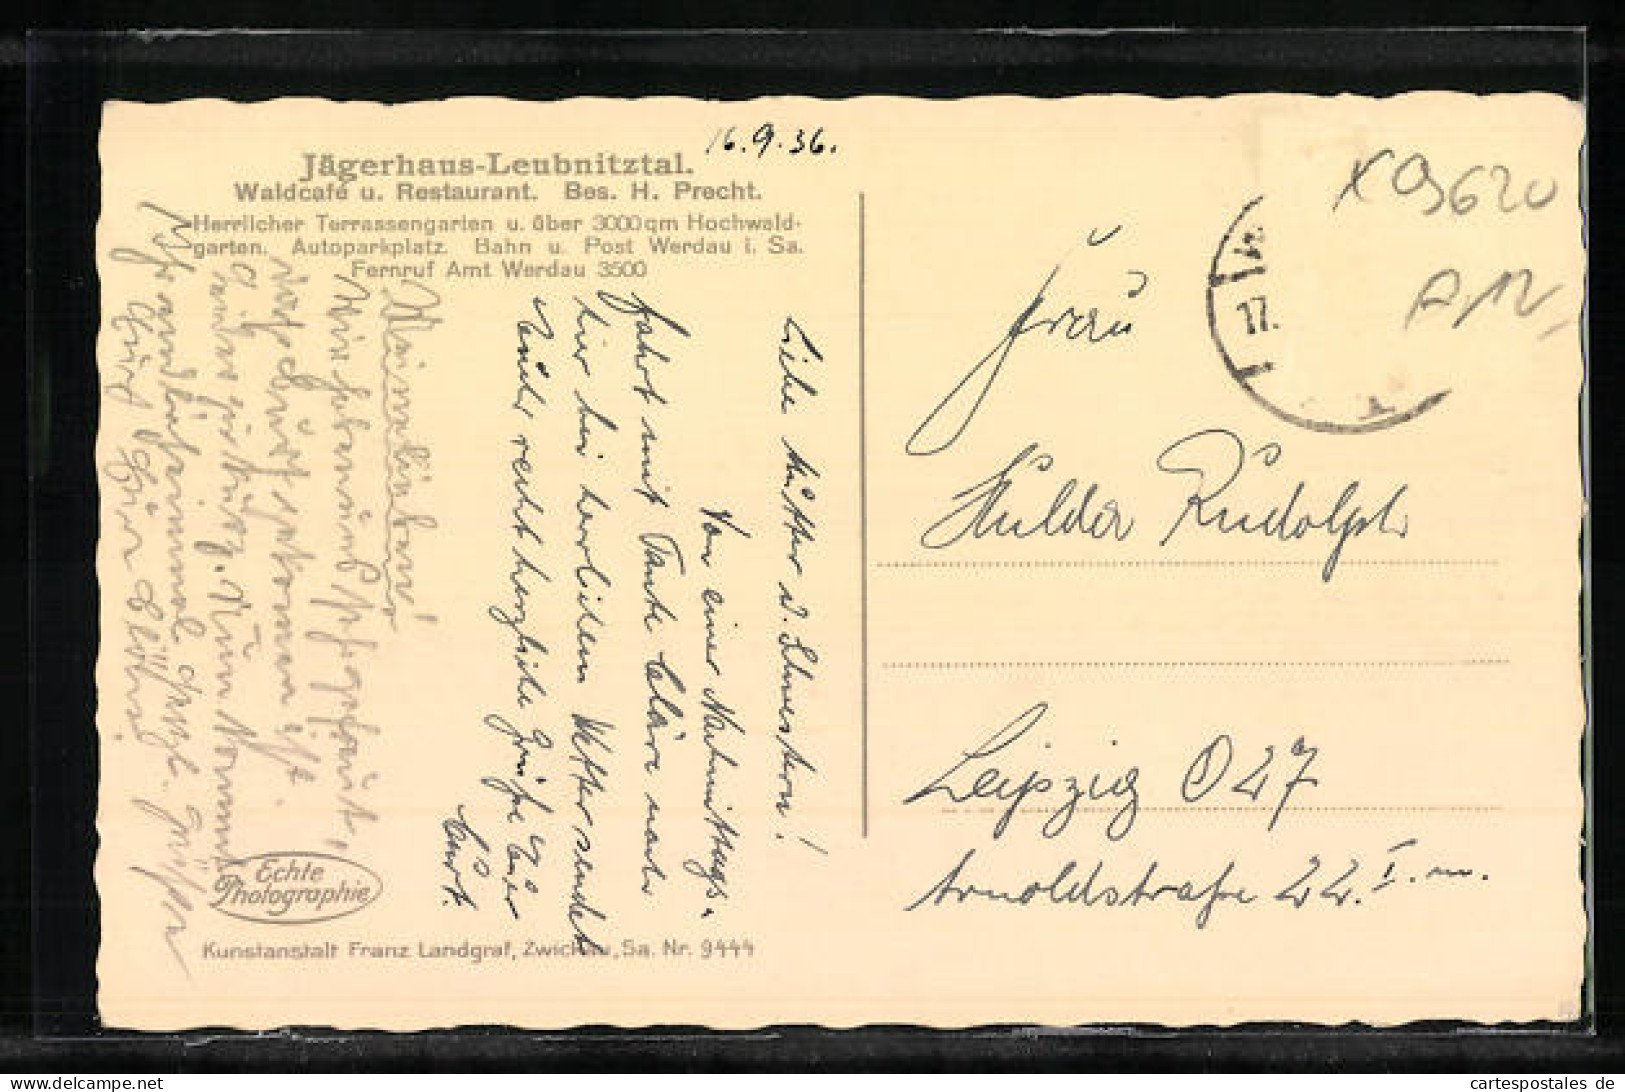 16.9.36.
Jägerhaus-Leubnitztal.
Waldcafé u. Restaurant. Bes. H. Precht.
Herrlicher Terrassengarten u. über 3000 qm Hochwald-
garten. Autoparkplatz. Bahn u. Post Werdau i. Sa.
Fernruf Amt Werdau 3500
Liebe Mutter u. Schwestern!
Von einer Nachmittags-
fahrt mit Tante Cläre nach
hier bei herrlichem Wetter sendet
Euch recht herzliche Grüße Euer
Curt.
Meine Lieben!
Wir haben uns
daß Curt gekommen ist.
Nun kommt
Ihr auch einmal
Echte
Photographie
Kunstanstalt Franz Landgraf, Zwickau, Sa. Nr. 9444
17.
X 09620
Frau
Hulda Rudolph
Leipzig O 27
Arnoldstraße 22. I. m.
cartespostales.de
cartespostales de